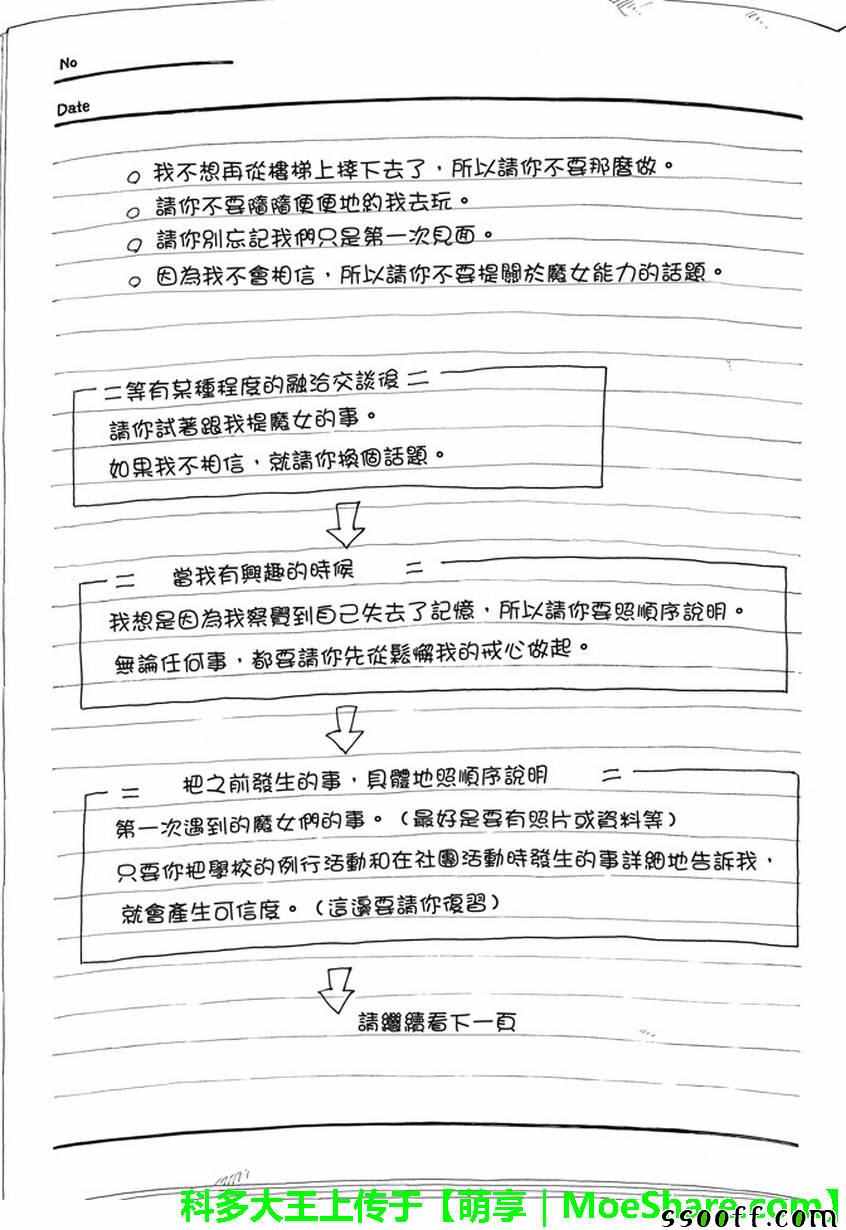 No
Date
○ 我不想再從樓梯上摔下去了，所以請你不要那麼做。
○ 請你不要隨隨便便地約我去玩。
○ 請你別忘記我們只是第一次見面。
○ 因為我不會相信，所以請你不要提關於魔女能力的話題。
＝等有某種程度的融洽交談後＝
請你試著跟我提魔女的事。
如果我不相信，就請你換個話題。
＝ 當我有興趣的時候 ＝
我想是因為我察覺到自己失去了記憶，所以請你要照順序說明。
無論任何事，都要請你先從鬆懈我的戒心做起。
＝ 把之前發生的事，具體地照順序說明 ＝
第一次遇到的魔女們的事。（最好是要有照片或資料等）
只要你把學校的例行活動和在社團活動時發生的事詳細地告訴我，
就會產生可信度。（這邊要請你復習）
請繼續看下一頁
科多大王上传于【萌享｜MoeShare.com】
ssooff.com